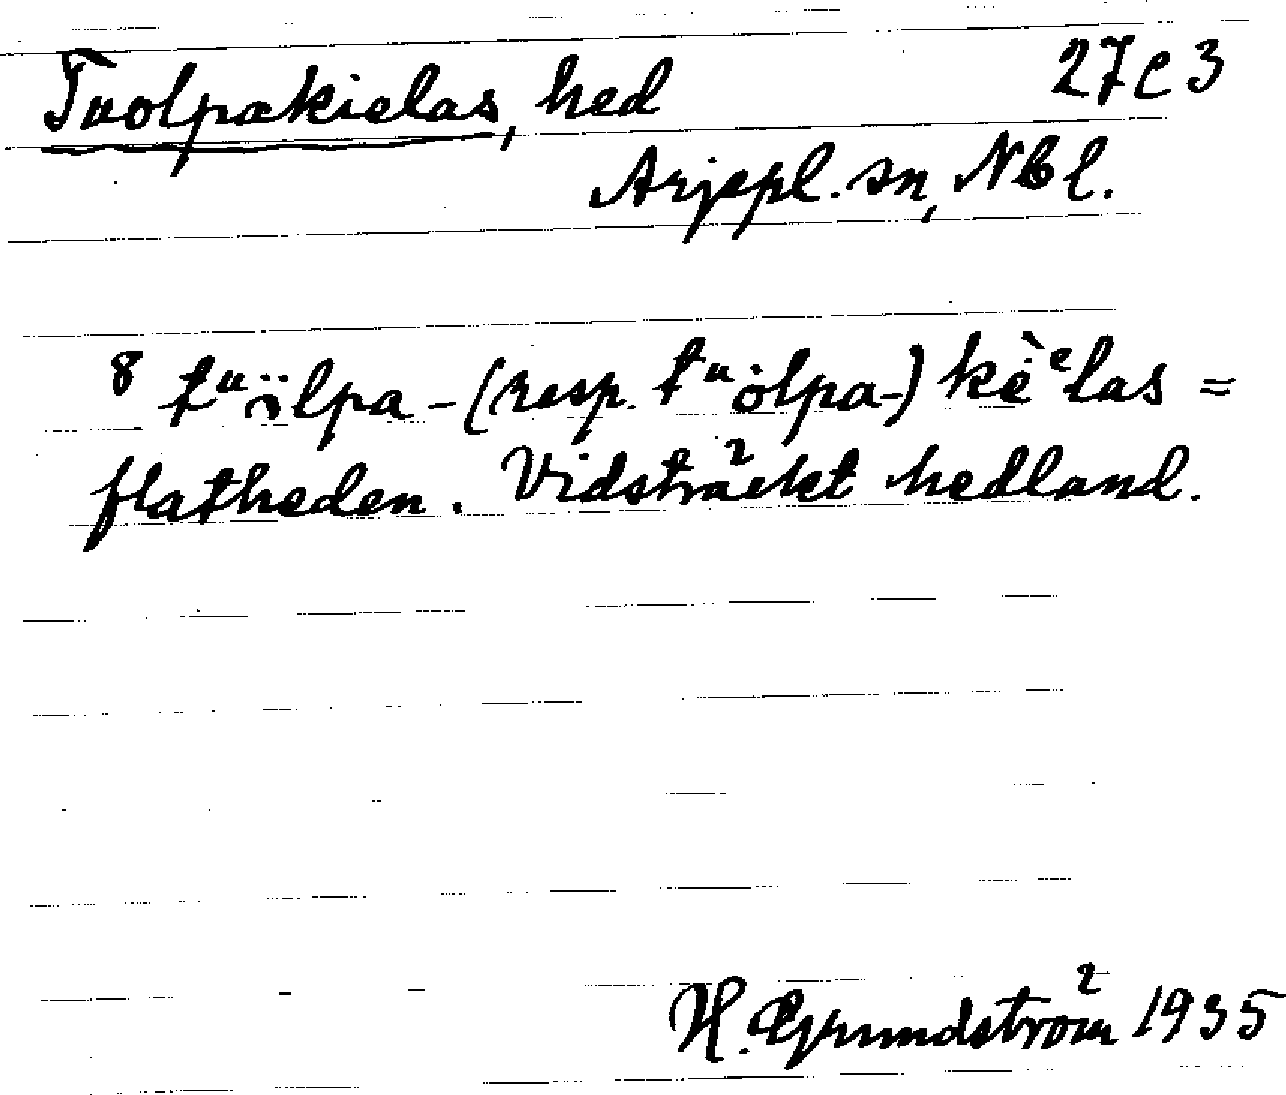 Tuolpakielas, hed 27C3
Arjepl. sn, Nbl.
8 tᵘölpa- (resp. tᵘȯlpa-) kèᵉlas =
flatheden. Vidsträckt hedland.
H. Grundström 1935